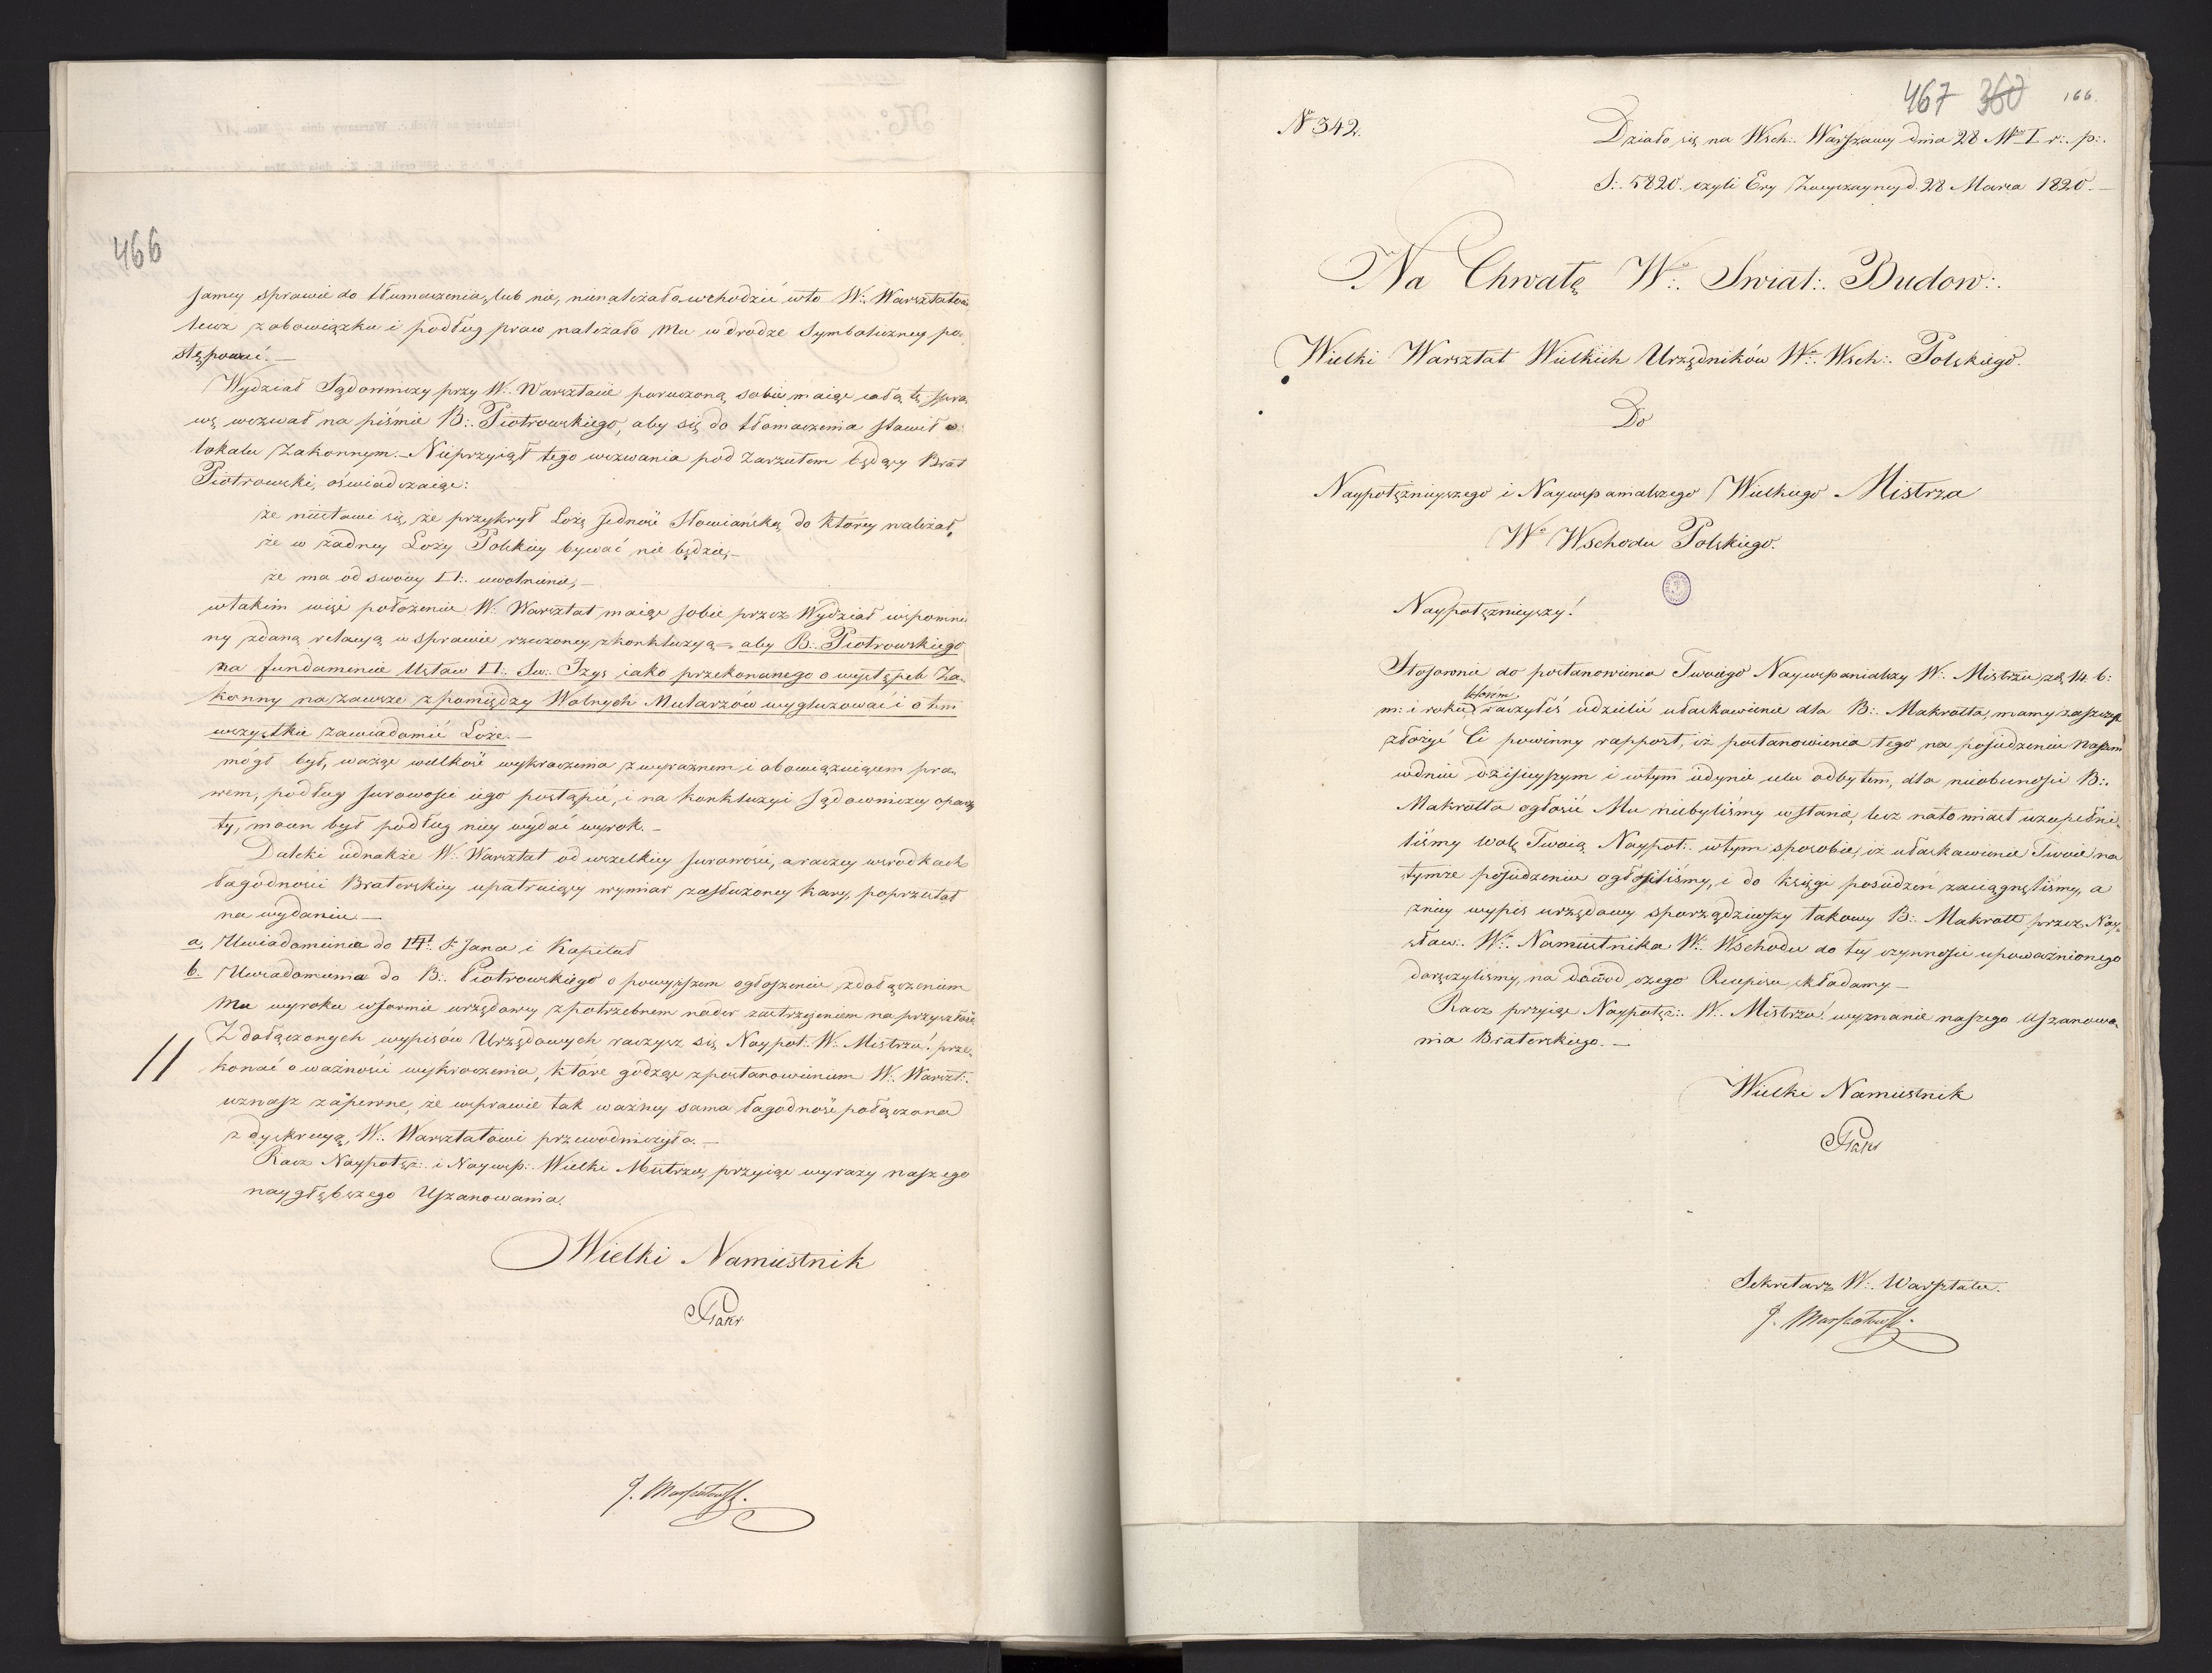 466
samey sprawie do tłumaczenia, lub nie, nienależało wchodzić w to W∴ Warsztatowi
lecz z obowiązku i podług praw należało Mu w drodze Symboliczney po-
stępować. —
Wydział Sądowniczy przy W∴ Warsztacie poruczoną sobie maiąc całą tę spra-
wę wezwał na piśmie B∴ Piotrowskiego, aby się do tłomaczenia stawił w
lokalu Zakonnym. — Nieprzyiął tego wezwania pod zarzutem będący Brat
Piotrowski, oświadczaiąc:
że niestawi się, że przykrył Lożę Jedność Słowiańską do którey należał,
że w żadney Loży Polskiey bywać nie będzie, —
że ma od swoiey □∴ uwolnienie, —
w takim więc położeniu W∴ Warsztat maiąc sobie przez Wydział wspomnio
ny zdaną relacyą w sprawie rzeczoney z konkluzyą = aby B∴ Piotrowskiego
na fundamencie Ustaw □∴ Św∴ Izys iako przekonanego o występek Za-
konny na zawsze z pomiędzy Wolnych Mularzów wygluzować i o tem
wszystkie zawiadomić Loże. —
mógł był, ważąc wielkość wykroczenia z wyraźnem i obowiązuiącem pra-
wem, podług surowości iego postąpić, i na konkluzyi Sądowniczey opar
ty, mocen był podług niey wydać wyrok. —
Daleki iednakże W∴ Warsztat od wszelkiey surowości, a raczey w środkach
łagodności Braterskiey upatruiący wymiar zasłużoney kary, poprzestał
na wydaniu. —
a. Uwiadomienia do □∴ S. Jana i Kapituł
b. Uwiadomienia do B∴ Piotrowskiego o powyższem ogłoszeniu z dołączeniem
Mu wyroku w formie urzędowey z potrzebnem nader zastrzeżeniem na przyszłość
Z dołączonych wypisów Urzędowych raczysz się Naypot∴ W∴ Mistrzu! prze-
konać o ważności wykroczenia, które godząc z postanowieniem W∴ Warszt∴
uznasz zapewne, że w sprawie tak ważney sama łagodność połączona
z dyskrecyą, W∴ Warsztatowi przewodniczyła. —
Racz Naypotęż∴ i Naywsp∴ Wielki Mistrzu, przyiąć wyrazy naszego
naygłębszego Uszanowania.
Wielki Namiestnik
467 360 166.
№ 342.
Działo się na Wsch∴ Warszawy dnia 28 M-ca I r∴ p∴
S∴ 5820. czyli Ery Zwyczayney d. 28 Marca 1820. —
Na Chwałę W∴ Swiat∴ Budow∴
Wielki Warsztat Wielkich Urzędników W∴ Wsch∴ Polskiego.
Do
Naypotężnieyszego i Naywspanialszego Wielkiego Mistrza
W∴ Wschodu Polskiego.
Naypotężnieyszy!
Stosownie do postanowienia Twoiego Naywspanialszy W∴ Mistrzu, z d. 14. b:
którem
m: i roku raczyłeś udzielić ułaskawienie dla B∴ Makrotta, mamy zaszczyt
złożyć Ci powinny rapport, iż postanowienia tego na posiedzeniu Naszem
w dniu dzisieyszym i w tym iedynie celu odbytem, dla nieobecności B∴
Makrotta ogłosić Mu niebyliśmy w stanie, lecz natomiast uzupełni-
liśmy wolę Twoią Naypot∴ w tym sposobie, iż ułaskawienie Twoie na
tymże posiedzeniu ogłosiliśmy, i do księgi posiedzeń zaciągnęliśmy, a
z niey wypis urzędowy sporządziwszy takowy B∴ Makrott przez Nay-
sław∴ W∴ Namiestnika W∴ Wschodu do tey czynności upoważnionego
doręczyliśmy, na dowód czego Recepis składamy —
Racz przyiąć Naypotęż∴ W∴ Mistrzu! wyznanie naszego Uszanowa-
nia Braterskiego. —
Wielki Namiestnik
Sekretarz W∴ Warsztatu.